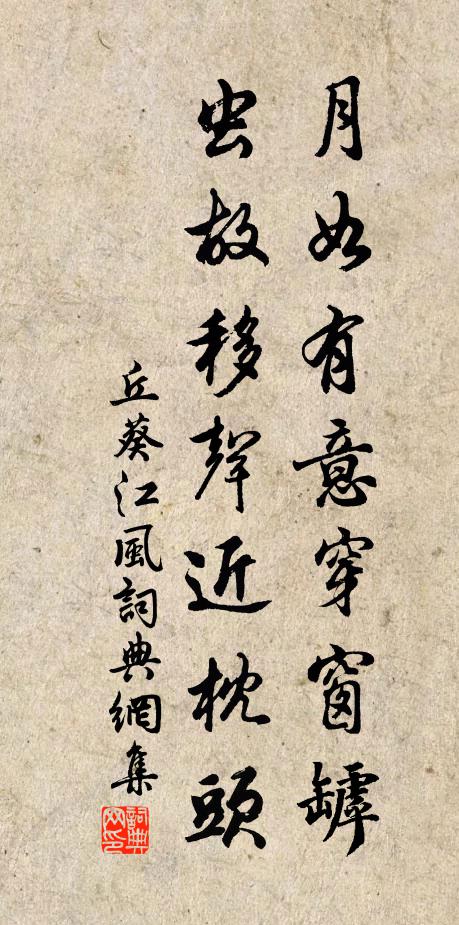 月如有意穿窗罅
虫故移聲近枕頭
丘葵江風詞典網集
詞典网印